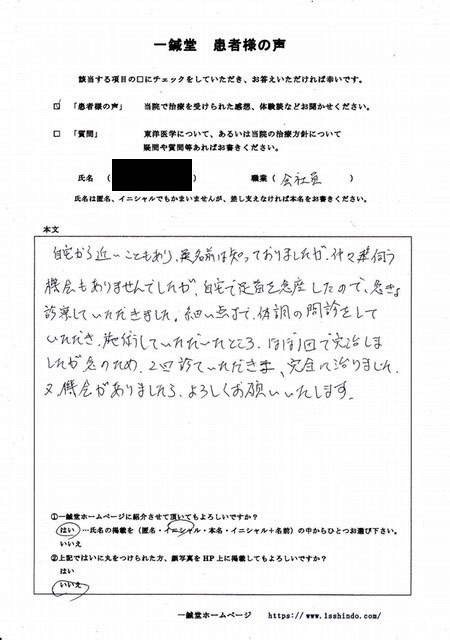 一鍼堂 患者様の声
該当する項目の□にチェックをしていただき、お答えいただければ幸いです。
☑ 「患者様の声」 当院で治療を受けられた感想、体験談などお聞かせください。
□ 「質問」 東洋医学について、あるいは当院の治療方針について
疑問や質問等あればお書きください。
氏名 ( ) 職業 ( 会社員 )
氏名は匿名、イニシャルでもかまいませんが、差し支えなければ本名をお書きください。
本文
自宅から近いこともあり、名前は知っておりましたが、伺う
機会もありませんでしたが、自宅で足首を捻したので、急きょ
診察していただきました。細い点まで、体調の問診をして
いただき、施術していただいたところ、ほぼ1回で完治しま
したが念のため、2回診ていただきま、完全に治りました。
又、機会がありましたら、よろしくお願いいたします。
①一鍼堂ホームページに紹介させて頂いてもよろしいですか?
はい …氏名の掲載を(匿名・イニシャル・本名・イニシャル+名前)の中からひとつお選び下さい。
いいえ
②上記ではいに丸をつけられた方、顔写真をHP上に掲載してもよろしいですか?
はい
いいえ
一鍼堂ホームページ https://www.1sshindo.com/